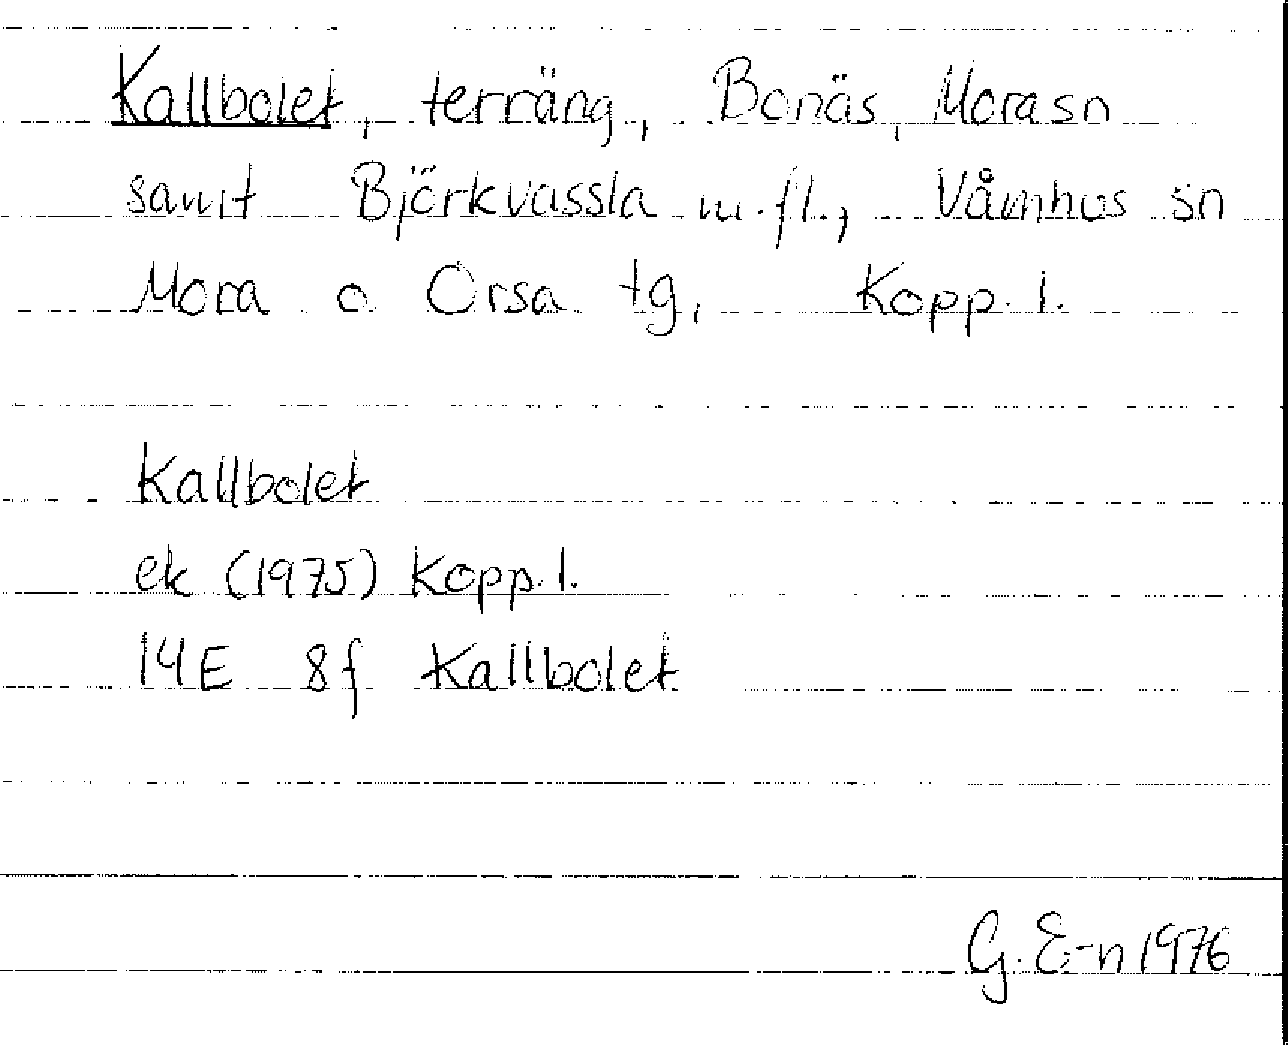 Kallbolet, terräng, Bonäs, Mora sn
samt Björkvassla m.fl., Våmhus sn
Mora o Orsa tg, Kopp. l.
Kallbolet
ek (1975) Kopp. l.
14E 8f Kallbolet
G. E-n 1976